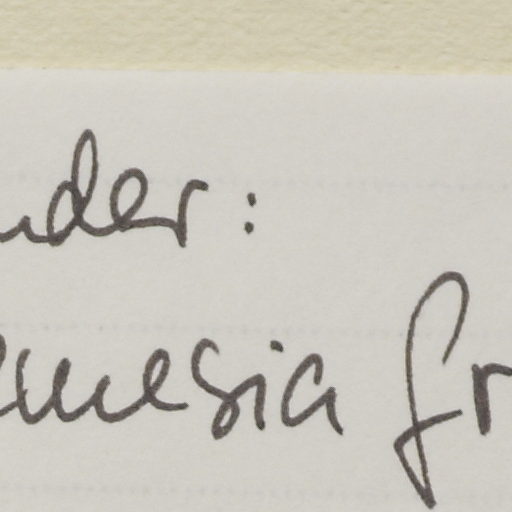 nder:
emesia fr